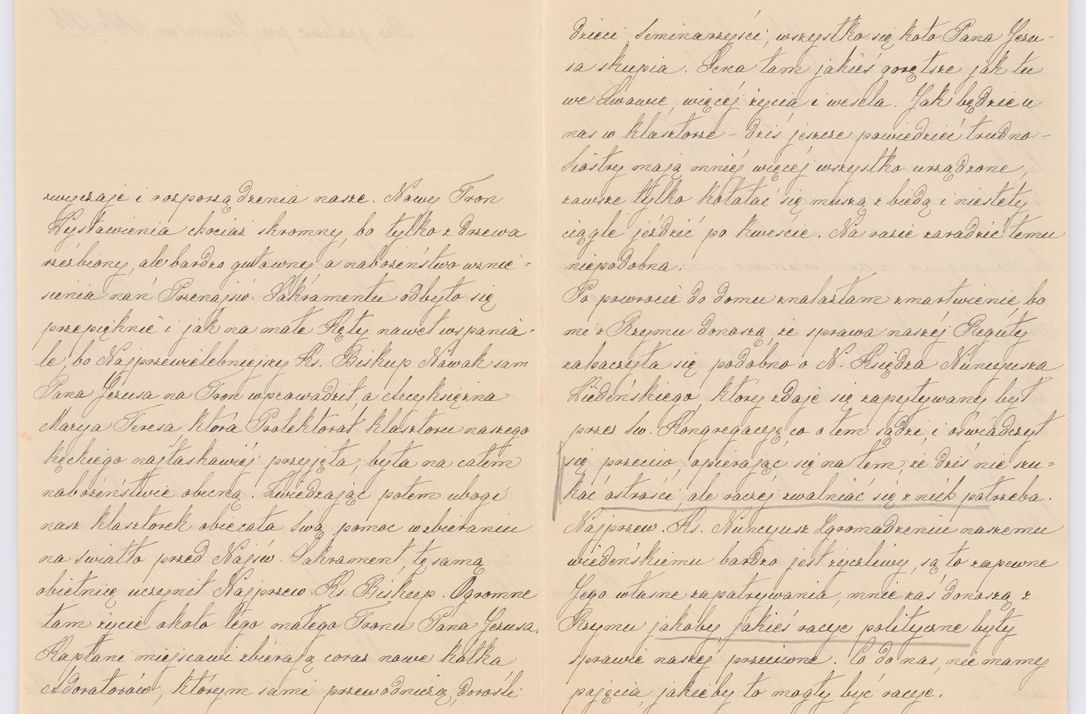 zwyczaje i rozporządzenia nasze. Nowy Tron
Wystawienia chociaż skromny, bo tylko z drzewa
rzeźbiony, ale bardzo gustowny, a nabożeństwo wznie-
sienia nań Przenajśw. Sakramentu odbyło się
przepięknie i jak na małe Kęty nawet wspania-
le, bo Najprzewielebniejszy Ks. Biskup Nowak sam
Pana Jezusa na Tron wprowadził, a Arcyksiężna
Marya Teresa która Protektorat klasztoru naszego
kęckiego najłaskawiej przyjęła, była na całem
nabożeństwie obecną. Zwiedzając potem ubogi
nasz klasztorek obiecała swą pomoc w zbieraniu
na światło przed Najśw. Sakrament, tę samą
obietnicę uczynił Najprzew. Ks. Biskup. Ogromne
tam życie około tego małego Tronu Pana Jezusa.
Kapłani miejscowi zbierają coraz nowe kółka
Adoratorów, którym sami przewodniczą, dorośli
dzieci seminarzyści, wszystko się koło Pana Jezu-
sa skupia. Serca tam jakieś gorętsze jak tu
we Lwowie, więcej życia i wesela. Jak będzie u
nas w klasztorze – dziś jeszcze powiedzieć trudno –
Siostry mają mniej więcej wszystko urządzone,
zawsze tylko kołatać się muszą z biedą i niestety
ciągle jeździć po kweście. Na razie zaradzić temu
niepodobna.
Po powrocie do domu znalazłam zmartwienie bo
mi z Rzymu donoszą, że sprawa naszej Reguły
zahaczyła się podobno o N. Księdza Nuncyusza
Wiedeńskiego, który zdaje się zapytywany był
przez św. Kongregacyę co o tem sądzi, i oświadczył
się przeciw, opierając się na tem, że dziś nie szu-
kać ostrości, ale raczej zwalniać się z nich potrzeba.
Najprzew. Ks. Nuncyusz Zgromadzeniu naszemu
wiedeńskiemu bardzo jest życzliwy, są to zapewne
Jego własne zapatrywania, mnie zaś donoszą z
Rzymu jakoby jakieś racye polityczne były
sprawie naszej przeciwne. Co do nas, nie mamy
pojęcia, jakieby to mogły być racye.